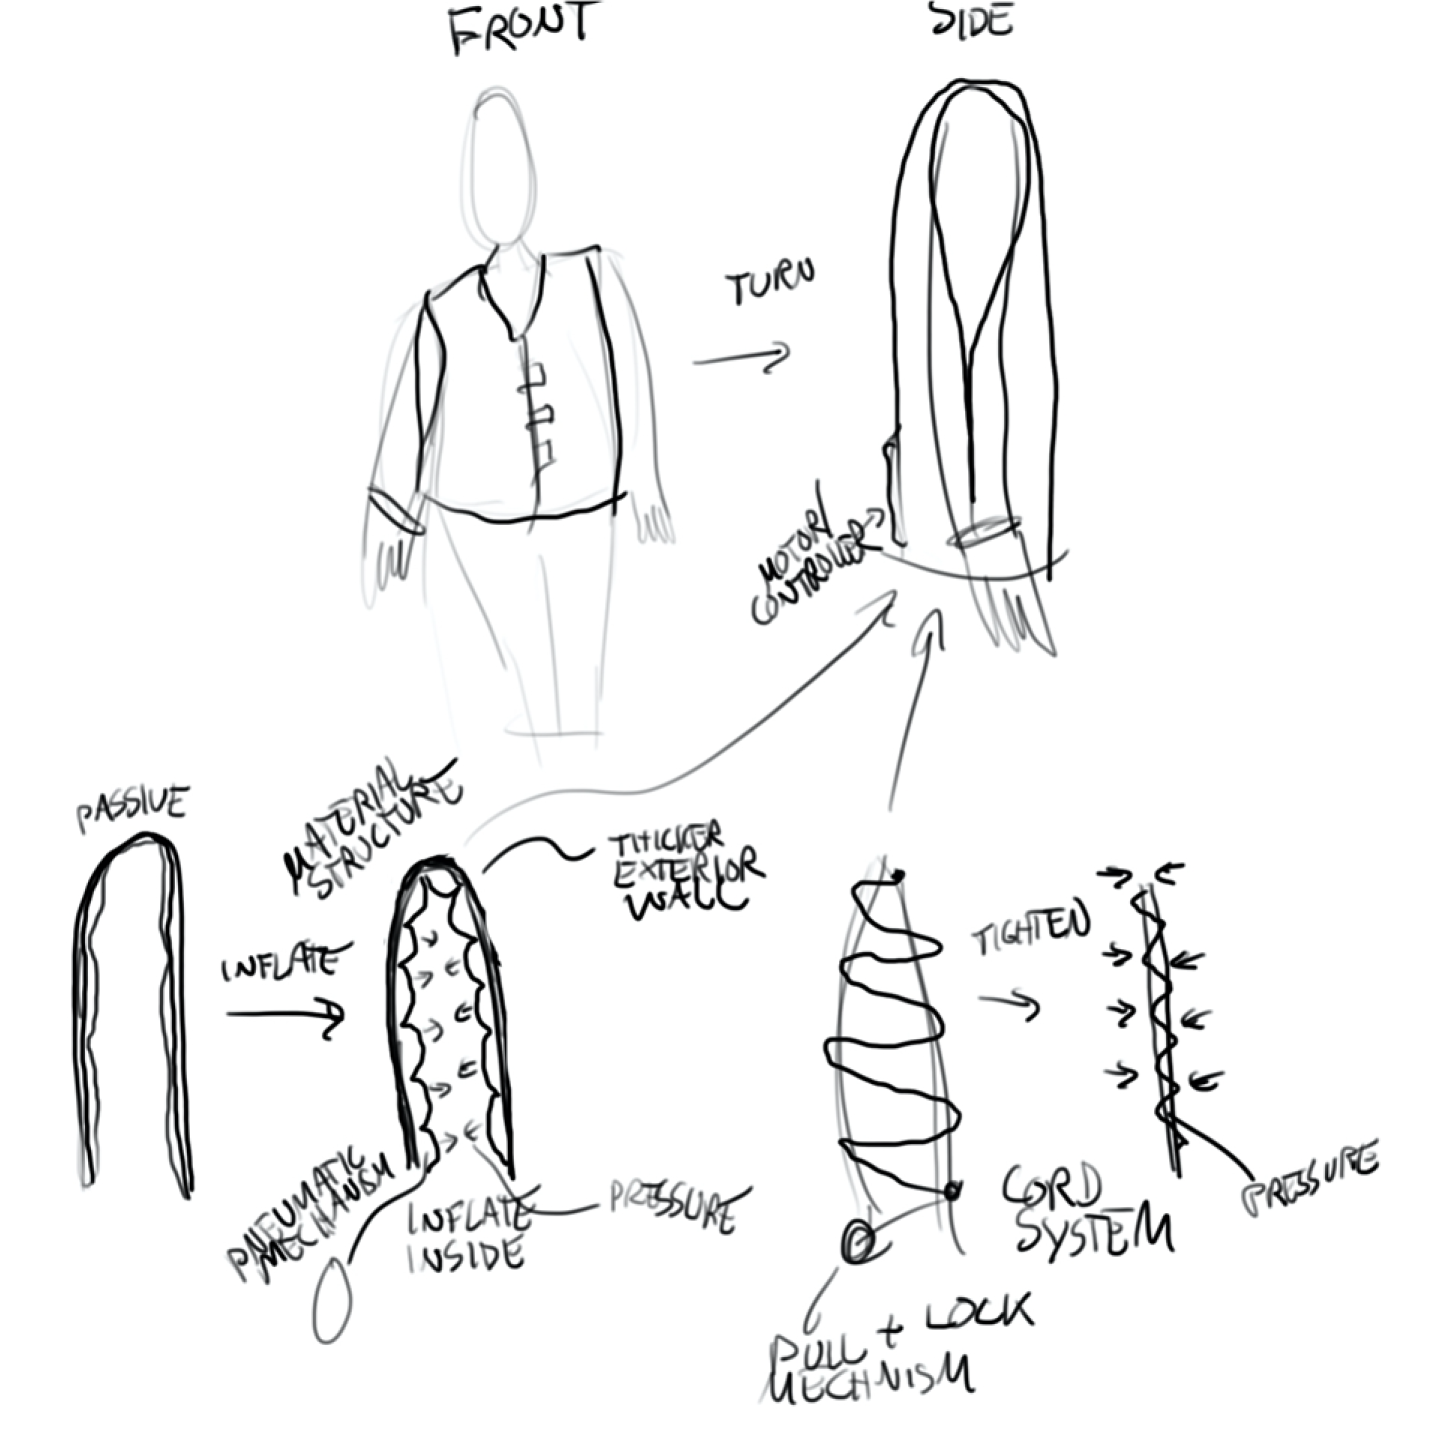 FRONT
SIDE
TURN
MOTOR/
CONTROLLER
PASSIVE
MATERIAL
STRUCTURE
THICKER
EXTERIOR
WALL
INFLATE
TIGHTEN
PNEUMATIC
MECHANISM
INFLATE
INSIDE
PRESSURE
CORD
SYSTEM
PRESSURE
PULL + LOCK
MECHNISM